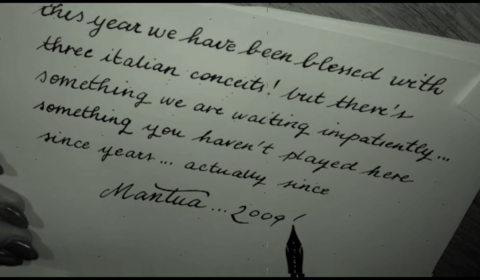 this year we have been blessed with
three italian conceits! but there's
something we are waiting impatiently...
something you haven't played here
since years... actually since
Mantua... 2009!